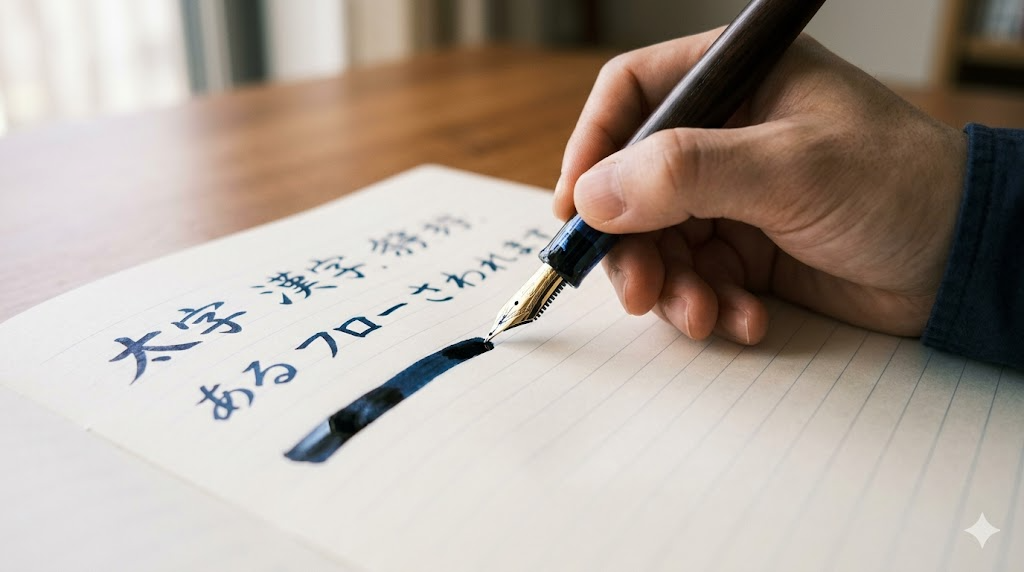 太字 漢字、
ある フローさわれます